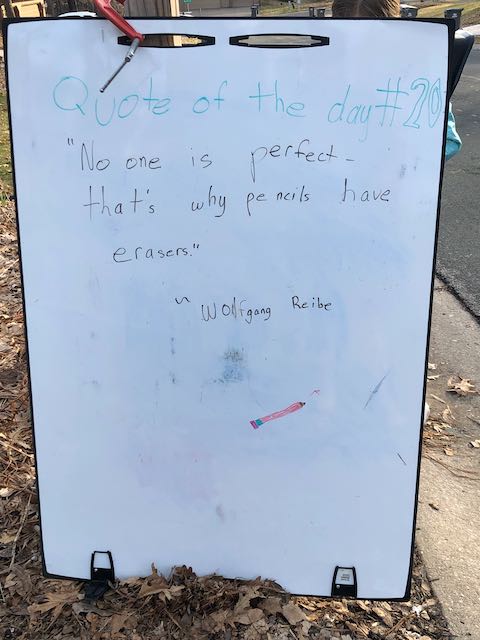 Quote of the day #20
"No one is perfect-
that's why pencils have
erasers."
~ Wolfgang Reibe